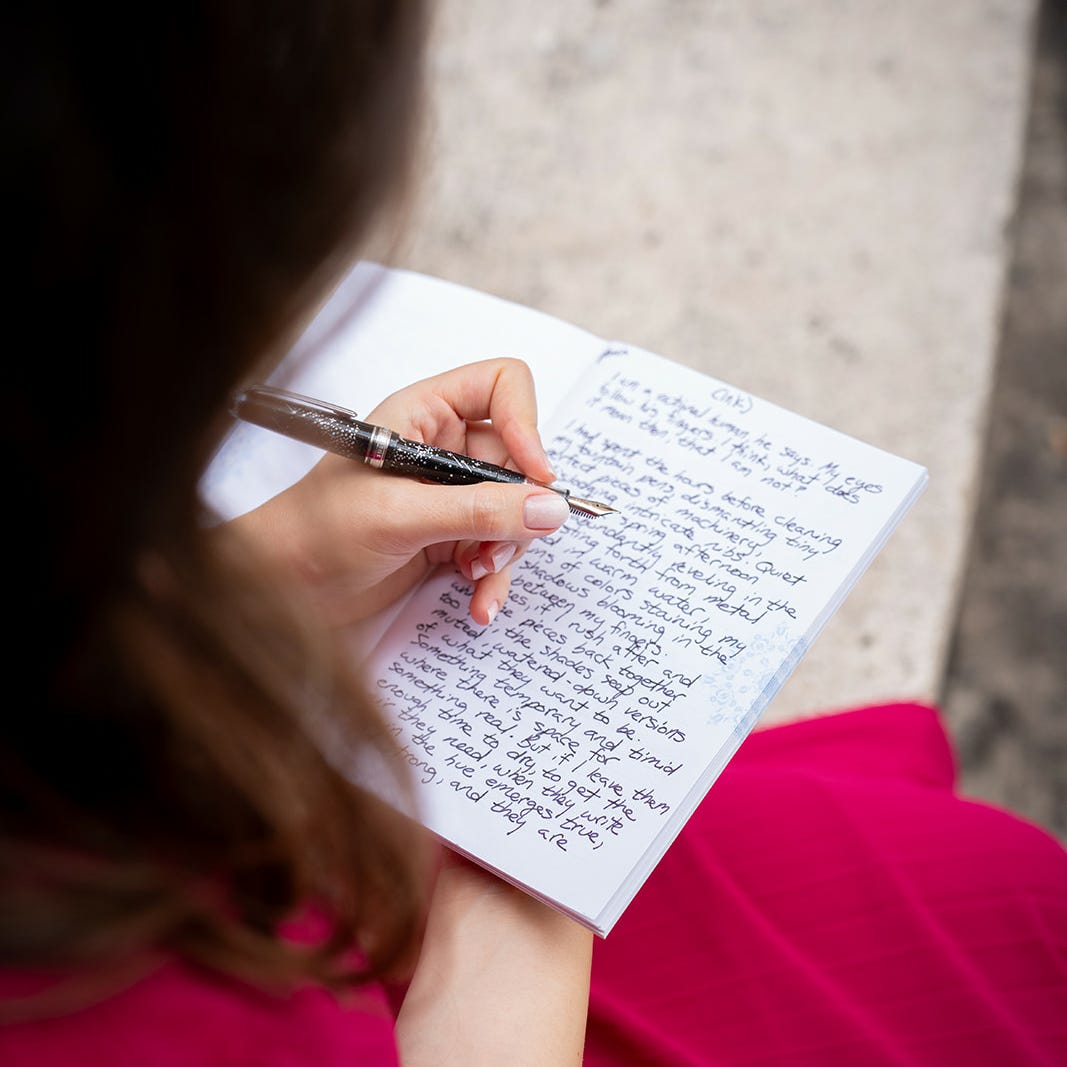 (Ink)
I am a natural human, he says. My eyes
follow his fingers, I think, what does
it mean then, that I am not?
I had spent the hours before cleaning
my fountain pens, dismantling tiny
pieces of machinery,
intricate nibs. Quiet
spring afternoon
reveling in the
forth from metal
in warm water,
of colors staining my
shadows blooming in the
between my fingers.
if I rush after and
pieces back together
muted, the shades seep out
of what they want to be.
watered-down versions
something temporary and timid
where there is space for
something real. But if I leave them
enough time to dry, to get the
air they need, when they write
the hue emerges true,
strong, and they are